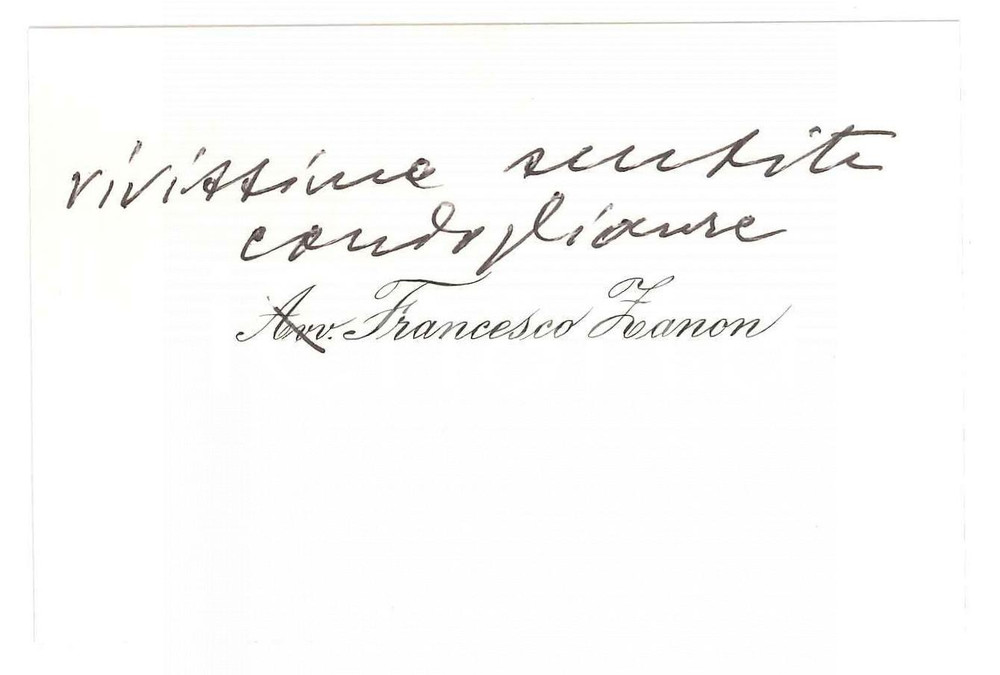 vivissime sentite
condoglianze
Avv. Francesco Zanon